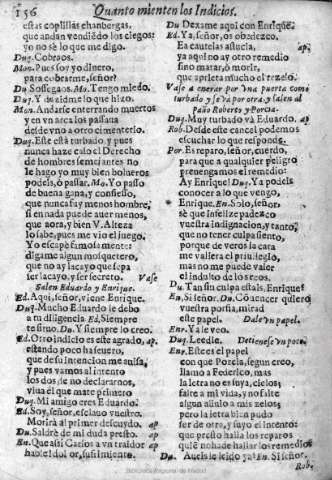 156 Quanto mienten los Indicios.
estas coplillas chanbergas,
que andan vendiẽdo los ciegos:
yo no sè lo que me digo.
Duq. Cobraos.
Mon. Pues soy yo dinero,
para cobrarme, señor?
Du Sossegaos. Mo. Tengo miedo.
Duq. Y dezidme lo que hizo.
Mon. Andarse enterrando muertos
y en vn arca los passaua
desde vno a otro cimenterio.
Duq. Este està turbado, y pues
nunca haze caso el Derecho
de hombres semejantes no
le hago yo muy bien bolueros
podeis, ò passar. Mo. Yo passo
de buena gana, y confiesso,
que nunca fuy menos hombre,
si en nada puede auer menos,
que aora, y bien V. Alteza
lo sabe, pues me vio el juego.
Yo escapè famosamente:
digame algun mosquetero,
que no ay lacayo que sepa
ser lacayo, y ser secreto. Vase
Salen Eduardo y Enrique.
Ed. Aqui, señor, viene Enrique.
Duq. Mucho Eduardo le debo
a tu diligencia Ed. Siempre
te siruo. Du. Y siempre lo creo.
Ed. Otro indicio es este agrado, ap.
estando poco ha seuero,
que de su intencion me auisa,
y pues vamos al intento
los dos de no declararnos,
viua el que mate primero
Duq. Mi amigo eres Eduardo?
Ed. Soy, señor, esclauo vuestro.
Morirà al primer descuydo, ap
Du. Saldrè de mi duda presto. ap
En. Que assi Carlos a vn traidor ap
hable del or, sufrimiento.
Du Dexame aqui con Enrique.
Ed. Ya, señor, os obadezco.
Ea cautelas astucia, ap.
ya aqui no ay otro remedio
sino matar, ò morir,
que aprieta mucho el rezelo.
Vase a entrar por vna puerta como
turbado y se va por otra, y salen al
paño Roberto y Porcia.
Duq. Muy turbado và Eduardo. ap
Rob. Desde este cancel podemos
escuchar lo que responde.
Por. Es reparo, señor, cuerdo,
para que a qualquier peligro
preuengamos el remedio:
Ay Enrique! Duq. Yà podeis
conocer a lo que vengo,
Enrique. En. Solo, señor,
sè que infelize padezco
vuestra indignacion, y tanto,
que no tener culpa siento,
porque de veros la cara
me vallera el priuilegio,
mas no me puede valer
el indulto de los reos.
Du. Tan sin culpa estais, Enrique?
En. Si señor. Du. Cõuencer quiero
vuestra porfia, mirad
este papel. Dale vn papel.
Enr. Ya le veo.
Duq. Leedle. Detienese vn poco
Enr. Este es el papel
con que Porcia, segun creo,
llamo a Federico, mas
la letra no es suya, cielos,
falte a mi vida, y no falte
algun aliuio a mis zelos;
pero la letra bien pudo
ser de otro, y suyo el intento:
que presto halla los reparos
quiẽ no ha de hallar remedios.
Du. Aueisle leido ya? En. Si señor.
Rob.
Biblioteca Regional de Madrid